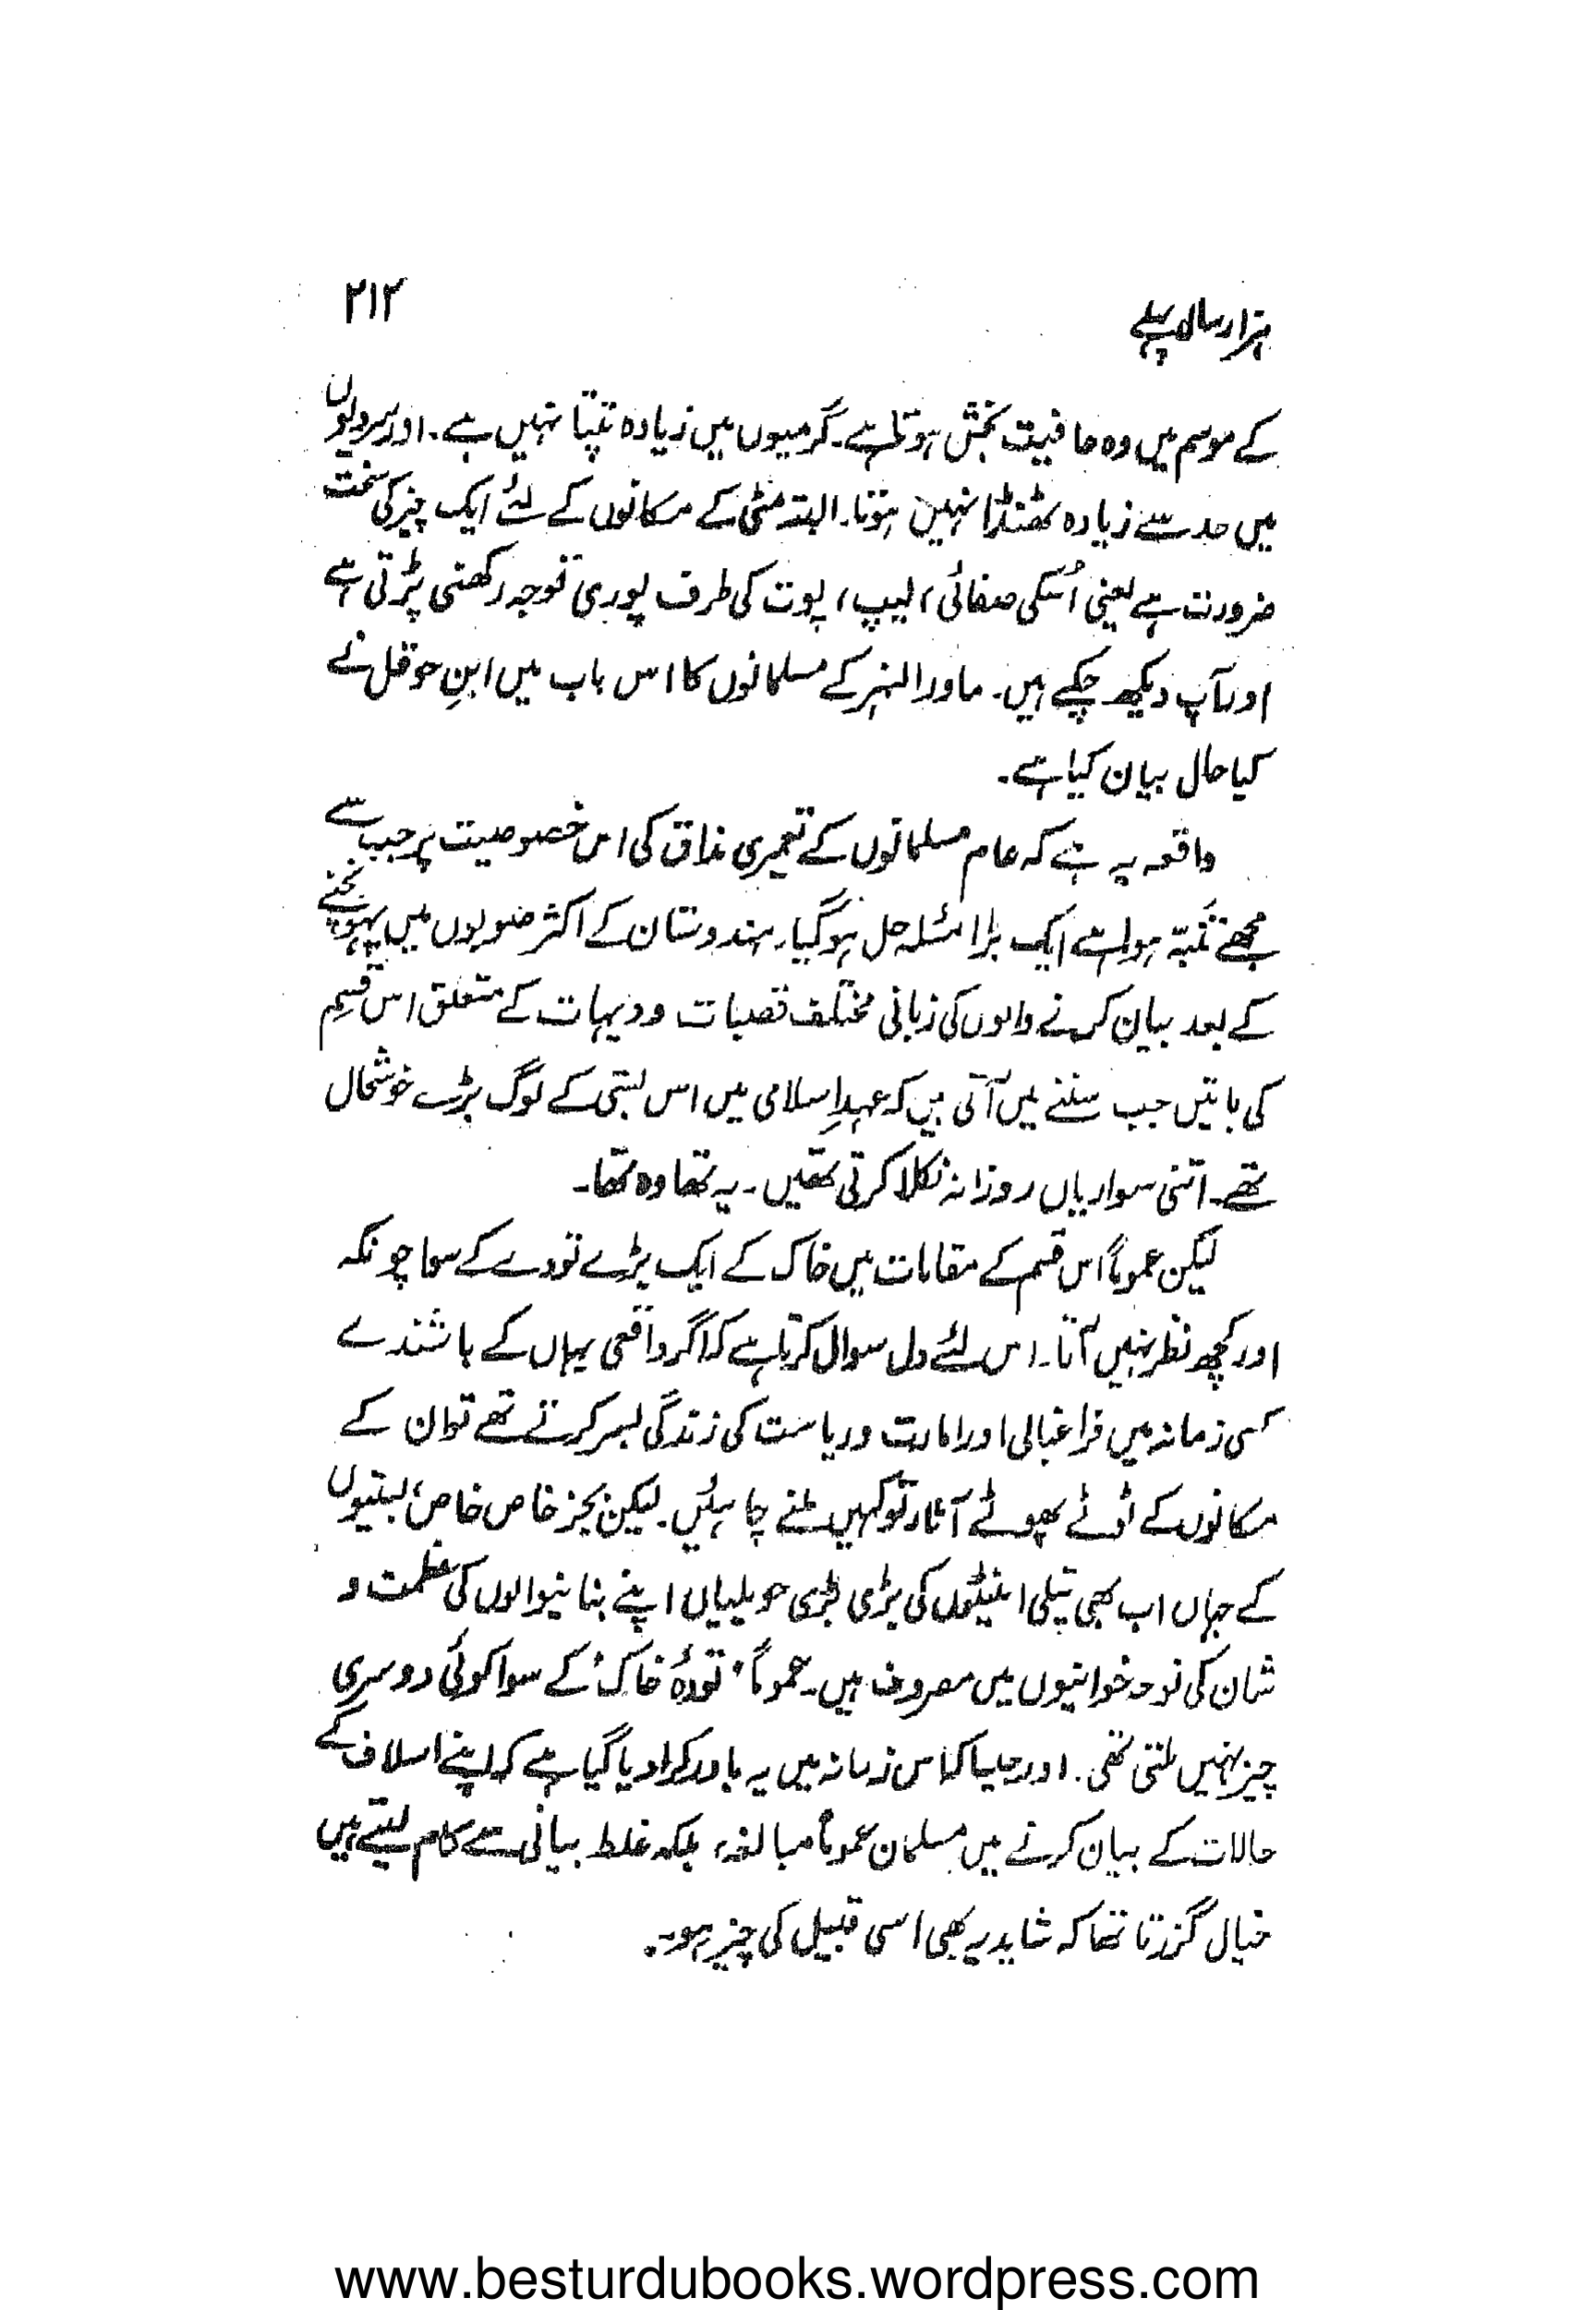 ہزار سال پہلے
۲۱۲
کے موسم میں وہ عافیت بخش ہوتا ہے۔ گرمیوں میں زیادہ تپتا نہیں ہے۔ اور سردیوں
میں حد سے زیادہ ٹھنڈا نہیں ہوتا۔ البتہ مٹی کے مکانوں کے لئے ایک چیز کی سخت
ضرورت ہے یعنی اُسکی صفائی، لیپ، پوت کی طرف پوری توجہ رکھنی پڑتی ہے
اور آپ دیکھ چکے ہیں۔ ماوراالنہر کے مسلمانوں کا اس باب میں ابنِ حوقل نے
کیا حال بیان کیا ہے۔
واقعہ یہ ہے کہ عام مسلمانوں کے تعمیری مذاق کی اس خصوصیت پر جب سے
مجھے تنبّہ ہوا ہے ایک بڑا مسئلہ حل ہو گیا۔ ہندوستان کے اکثر صوبوں میں پہونچنے
کے بعد بیان کرنے والوں کی زبانی مختلف قصبات و دیہات کے متعلق اس قسم
کی باتیں جب سننے میں آتی ہیں کہ عہدِ اسلامی میں اس بستی کے لوگ بڑے خوشحال
تھے۔ اتنی سواریاں روزانہ نکلا کرتی تھیں۔ یہ تھا وہ تھا۔
لیکن عموماً اس قسم کے مقامات میں خاک کے ایک بڑے تودے کے سوا چونکہ
اور کچھ نظر نہیں آتا۔ اس لئے دل سوال کرتا ہے کہ اگر واقعی یہاں کے باشندے
کسی زمانہ میں فراغبالی اور امارت و ریاست کی زندگی بسر کرتے تھے تو ان کے
مکانوں کے ٹوٹے پھوٹے آثار تو کہیں ملنے چاہئیں۔ لیکن بجز خاص خاص بستیوں
کے جہاں اب بھی پتلی اینٹوں کی بڑی بڑی حویلیاں اپنے بنانیوالوں کی عظمت و
شان کی نوحہ خوانیوں میں مصروف ہیں۔ عموماً ‘تودۂ خاک’ کے سوا کوئی دوسری
چیز نہیں ملتی تھی۔ اور جیسا کہ اس زمانہ میں یہ باور کرا دیا گیا ہے کہ اپنے اسلاف کے
حالات کے بیان کرنے میں مسلمان عموماً مبالغہ، بلکہ غلط بیانی سے کام لیتے ہیں
خیال گزرتا تھا کہ شاید یہ بھی اسی قبیل کی چیز ہو۔
www.besturdubooks.wordpress.com